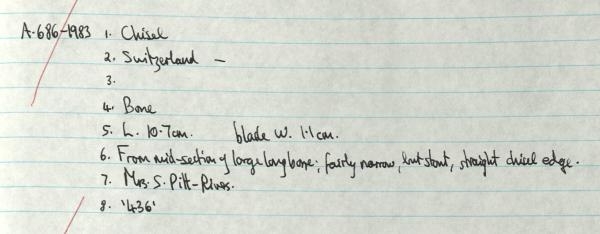 A.686-1983 1. Chisel
2. Switzerland –
3.
4. Bone
5. L. 10.7cm. blade W. 1.1cm.
6. From mid-section of large long bone; fairly narrow, but stout, straight chisel edge.
7. Mrs. S. Pitt-Rivers.
8. '436'